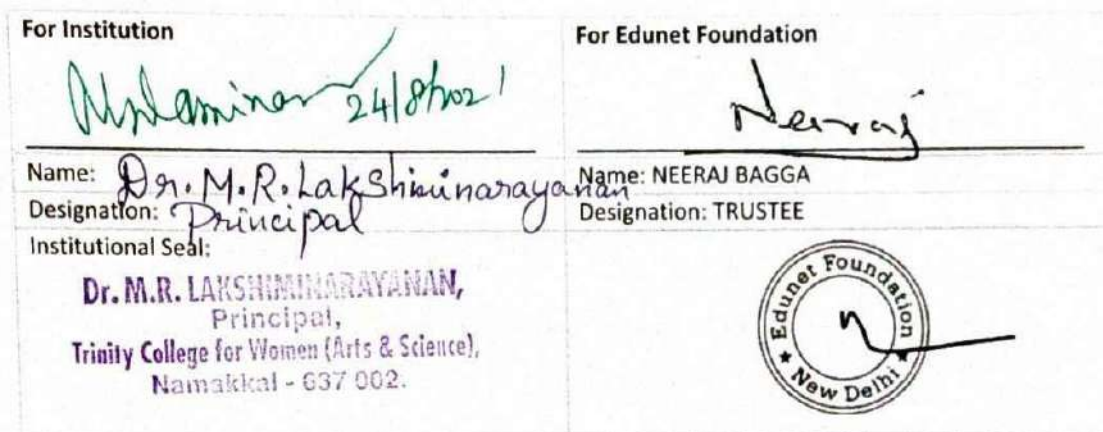 For Institution
24/8/2021
Name: Dr. M.R. Lakshiminarayanan
Designation: Principal
Institutional Seal:
Dr. M.R. LAKSHIMINARAYANAN,
Principal,
Trinity College for Women (Arts & Science),
Namakkal - 637 002.
For Edunet Foundation
Neeraj
Name: NEERAJ BAGGA
Designation: TRUSTEE
Edunet Foundation
New Delhi